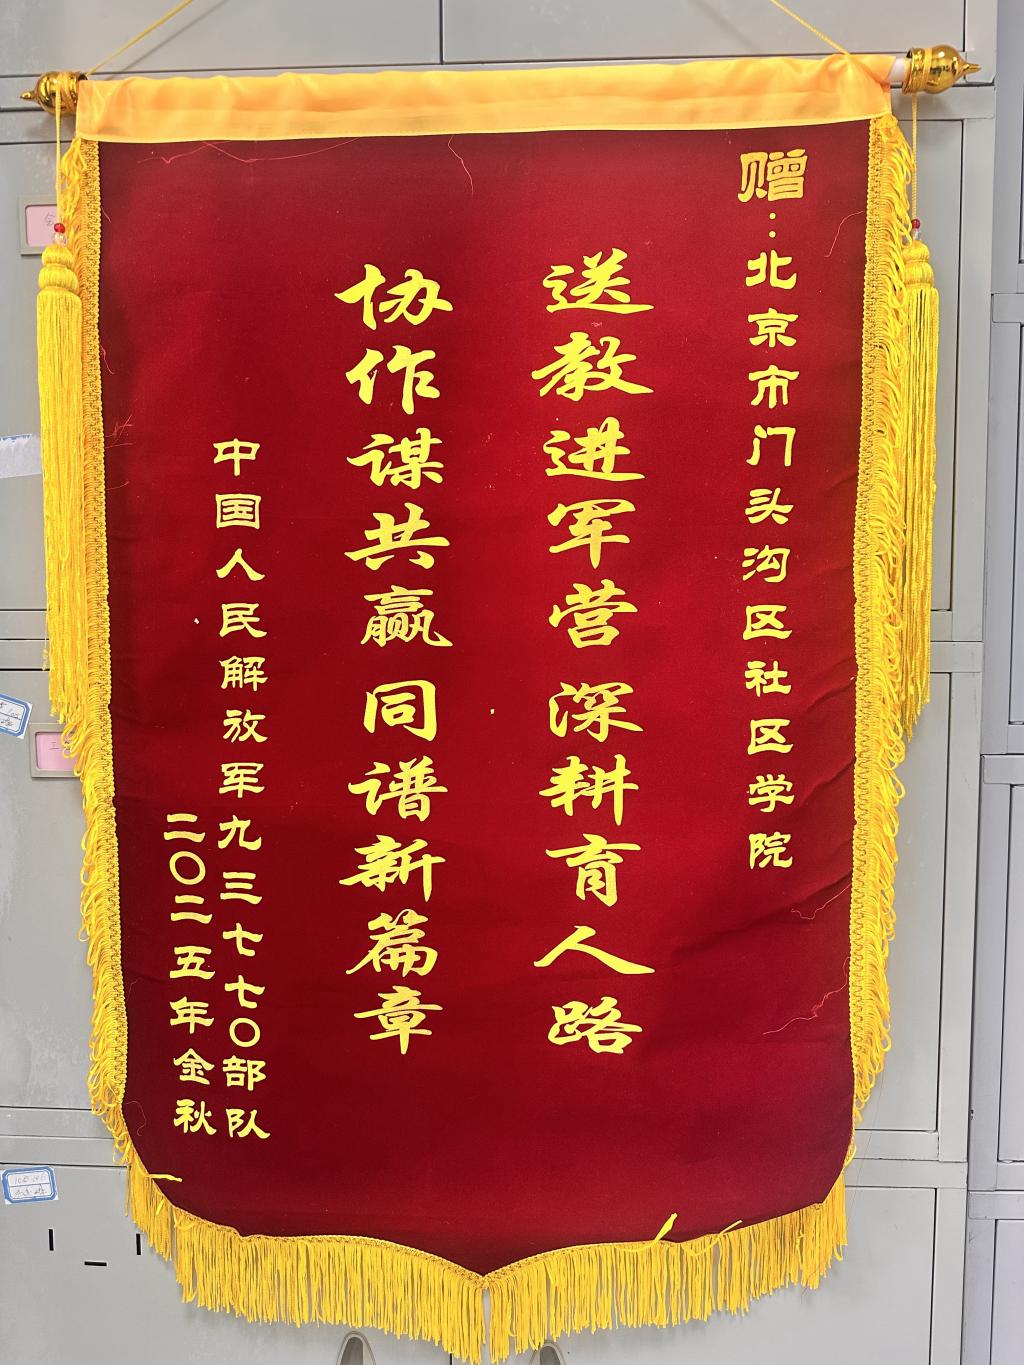 赠：北京市门头沟区社区学院
送教进军营 深耕育人路
协作谋共赢 同谱新篇章
中国人民解放军九三七七〇部队
二〇二五年金秋